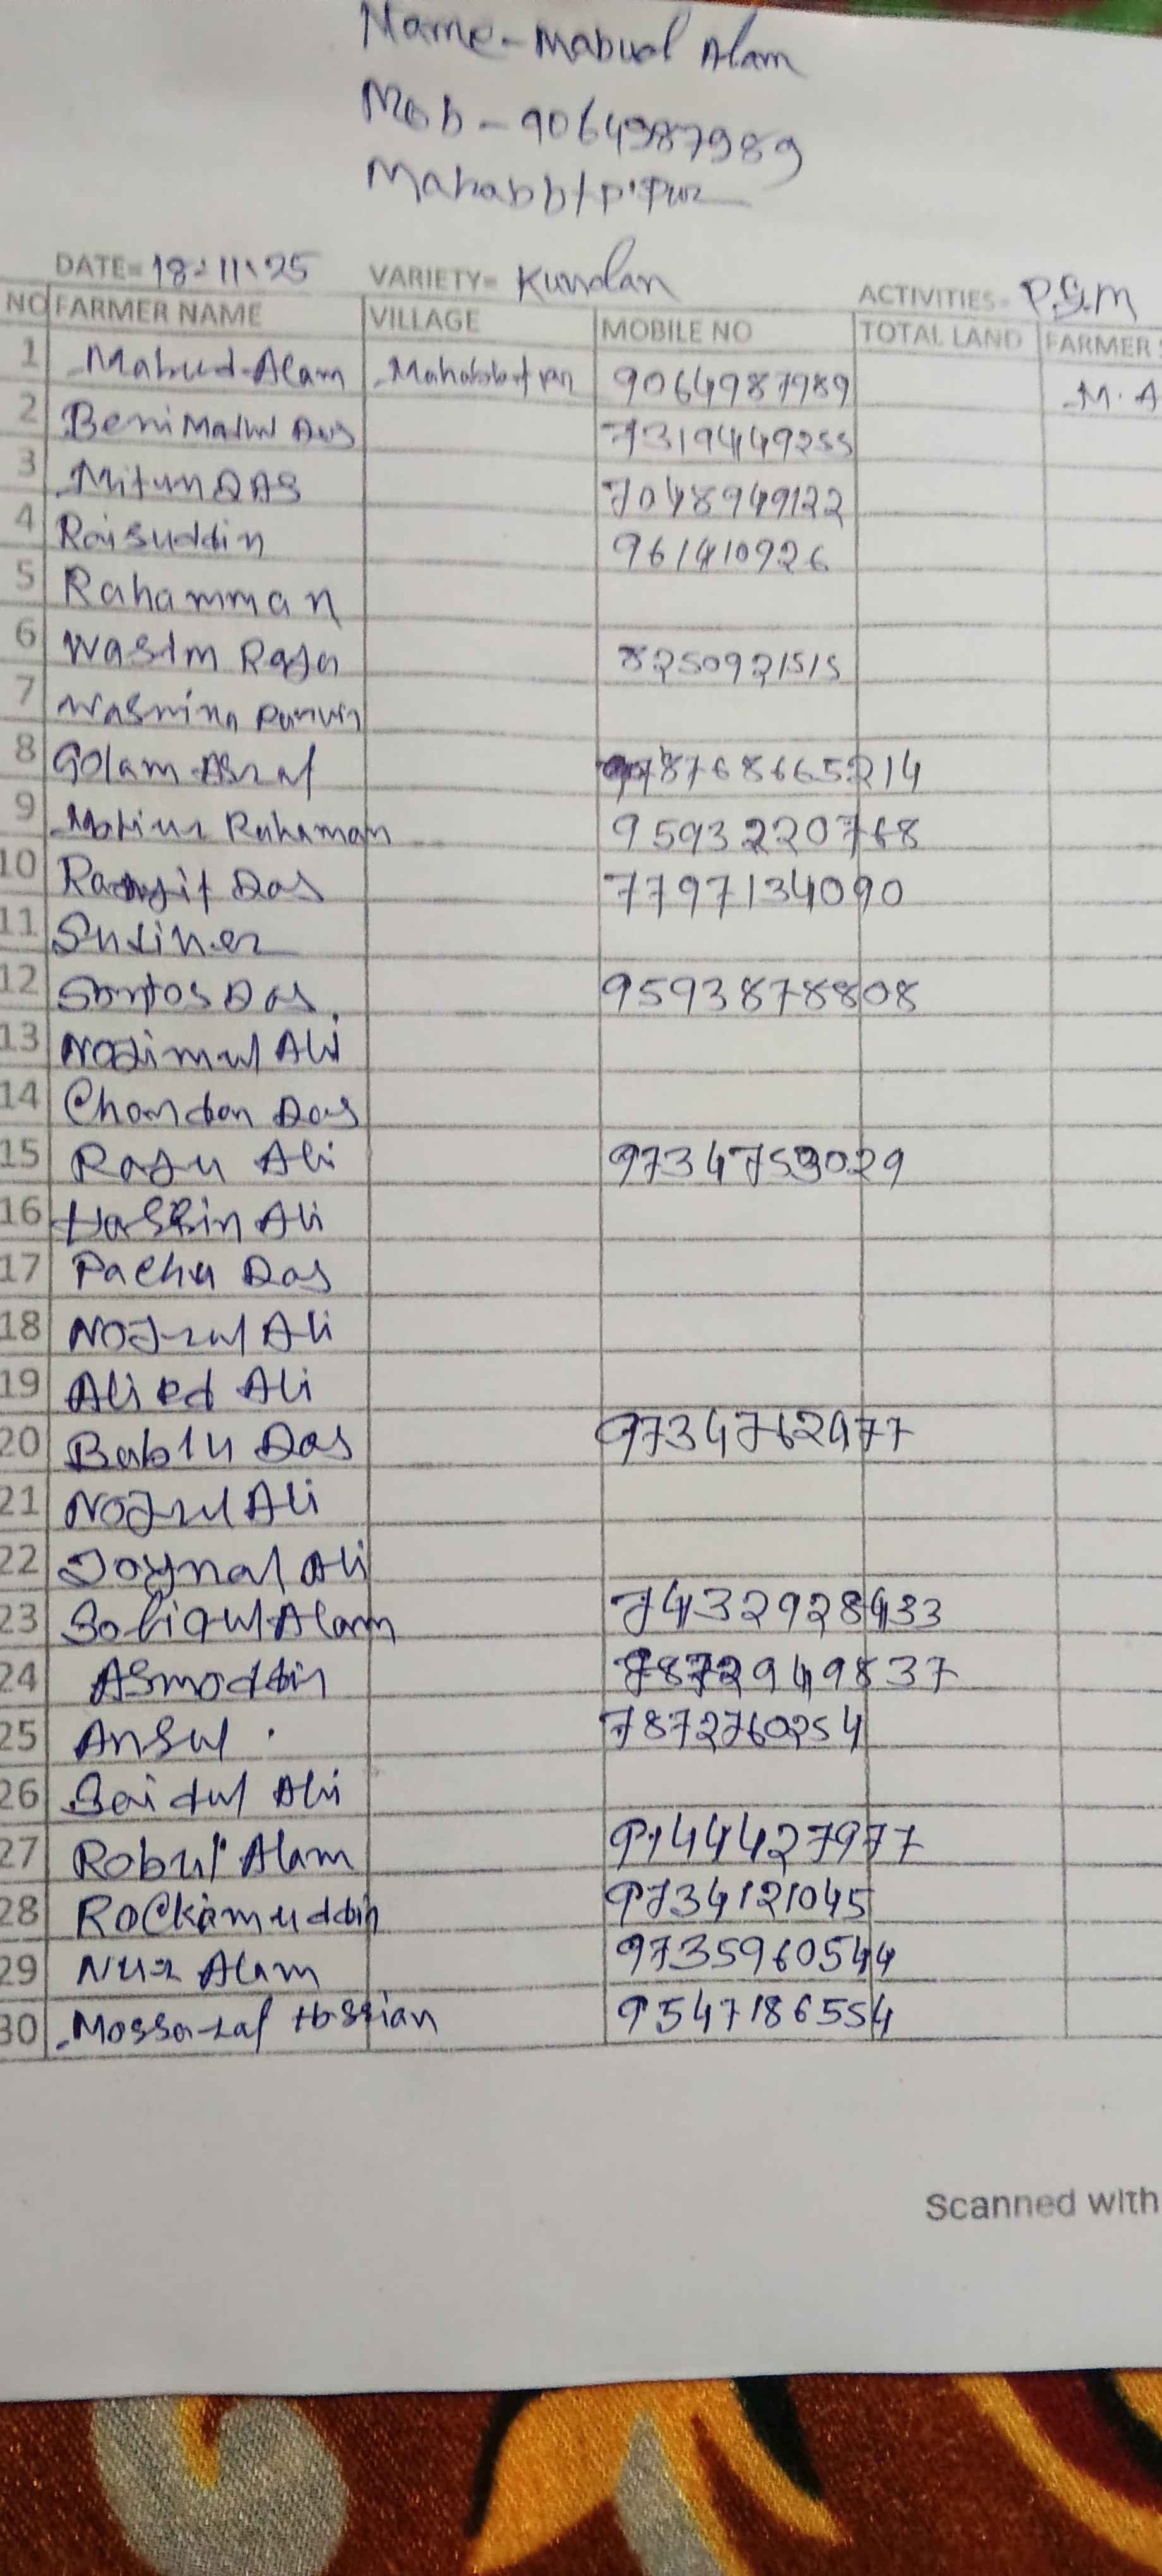 Name - Mabud Alam
Mob - 9064987989
DATE= 18-11-25 VARIETY= Kundan ACTIVITIES= P.S.M
NO FARMER NAME VILLAGE MOBILE NO TOTAL LAND FARMER
1 Mabud Alam 9064987989 M. A
2 Das 7319449255
3 Mitun DAS 7048949122
4 Raisuddin 961410926
5 Rahamman
6 Wasim Raja 8250921515
7
8 Golam Asraf 8768665214
9 Rahaman 9593220768
10 Ranjit Das 7797134090
11
12 Santos Das 9593878808
13 Nojimul Ali
14 Chandan Das
15 Raju Ali 9734753029
16 Ali
17 Pachu Das
18 Nojrul Ali
19 Ali
20 Bablu Das 9734762977
21 Nojrul Ali
22 Joynal Ali
23 Alam 7432928433
24 Asmoddin
25 7872760254
26 Saidul Ali
27 Robiul Alam 9144427977
28 Rockimuddin 9734121045
29 Nur Alam 9735960544
30 9547186554
Scanned with